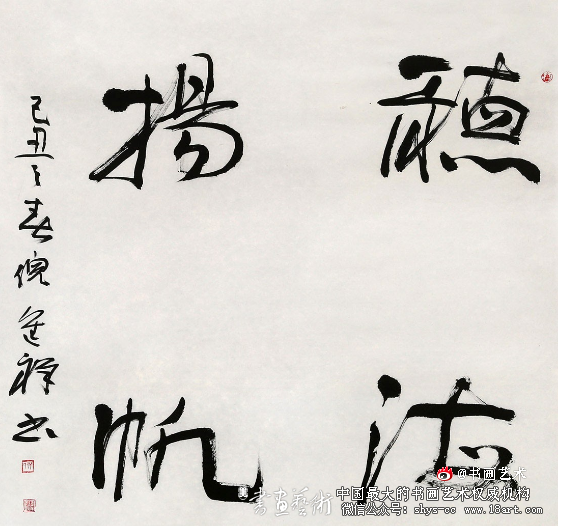 穗海
揚帆
己丑之春倪進祥书
@书画艺术
書畫藝術
中国最大的书画艺术权威机构
微信公众号：shys-cc www.18art.com